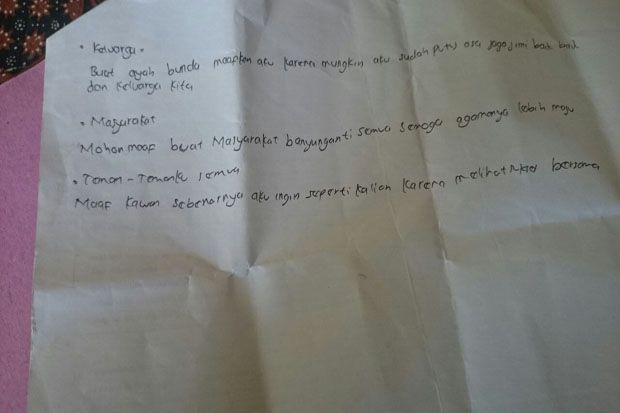 • Keluarga •
Buat ayah bunda maafkan aku karena mungkin aku sudah putus asa jaga jimi baik baik
dan keluarga kita
• Masyarakat
Mohon maaf buat Masyarakat banyunganti semua semoga agamanya lebih maju
• Teman - Temanku semua
Maaf kawan sebenarnya aku ingin seperti kalian karena melihat bersama